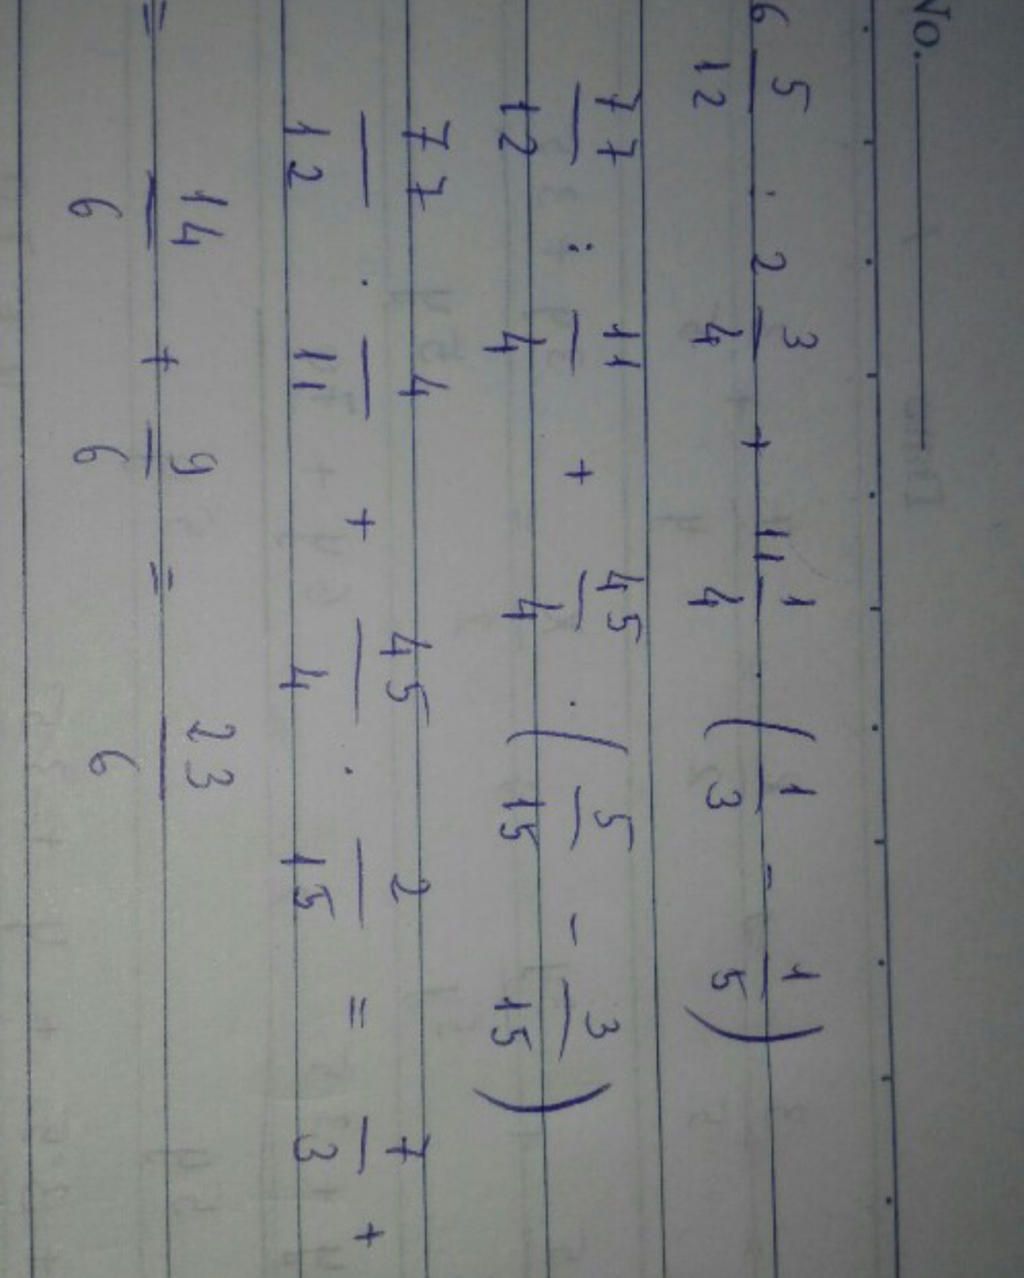 No.
6 5/12 : 2 3/4 + 11 1/4 . ( 1/3 - 1/5 )
77/12 : 11/4 + 45/4 . ( 5/15 - 3/15 )
77/12 . 4/11 + 45/4 . 2/15 = 7/3 +
= 14/6 + 9/6 = 23/6